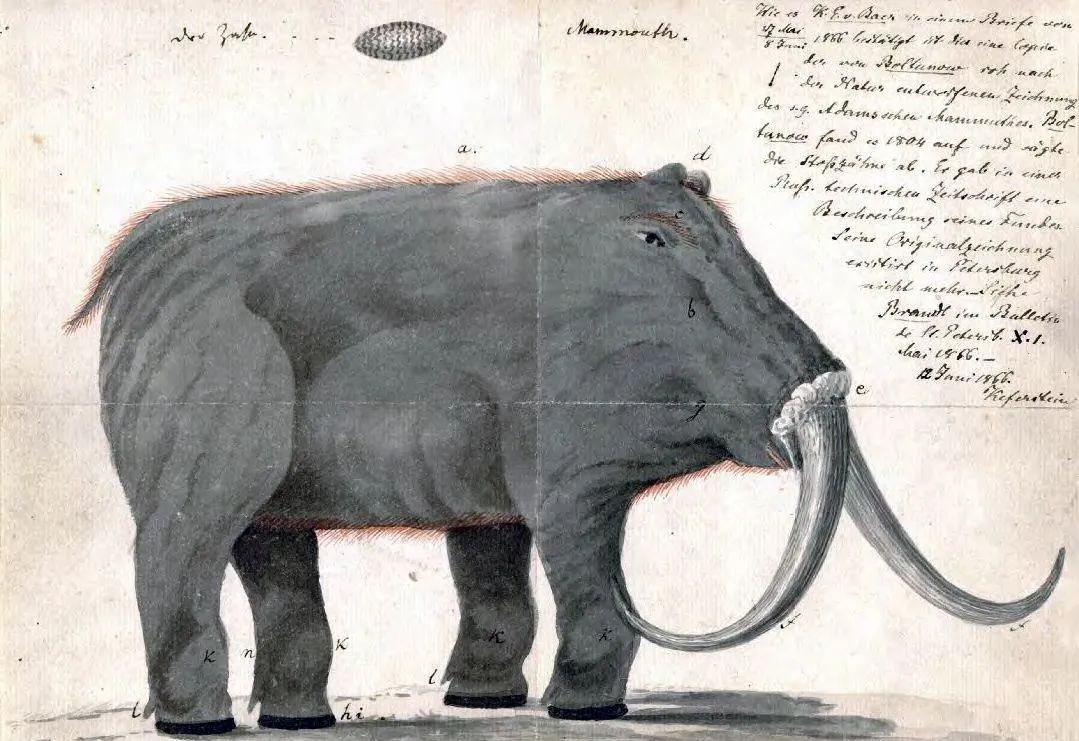 der Zahn. . . . .
Mammouth.
Wie es K. E. v. Baer in einem Briefe von
27 Mai
8 Juni 1866 bestätigt ist dies eine Copie
der von Boltunow roh nach
der Natur entworfenen Zeichnung
des sg. Adamsschen Mammuthes. Bol-
tunow fand es 1804 auf und sägte
die Stoßzähne ab. Er gab in einer
Russ. technischen Zeitschrift eine
Beschreibung seines Fundes.
Seine Originalzeichnung
existirt in Petersburg
nicht mehr. Siehe
Brandt im Bulletin
de St. Petersb. X. 1.
Mai 1866.—
12 Juni 1866.
Keferstein
a.
d
c
b
e
g
f
f
k
n
k
k
k
l
l
h i .